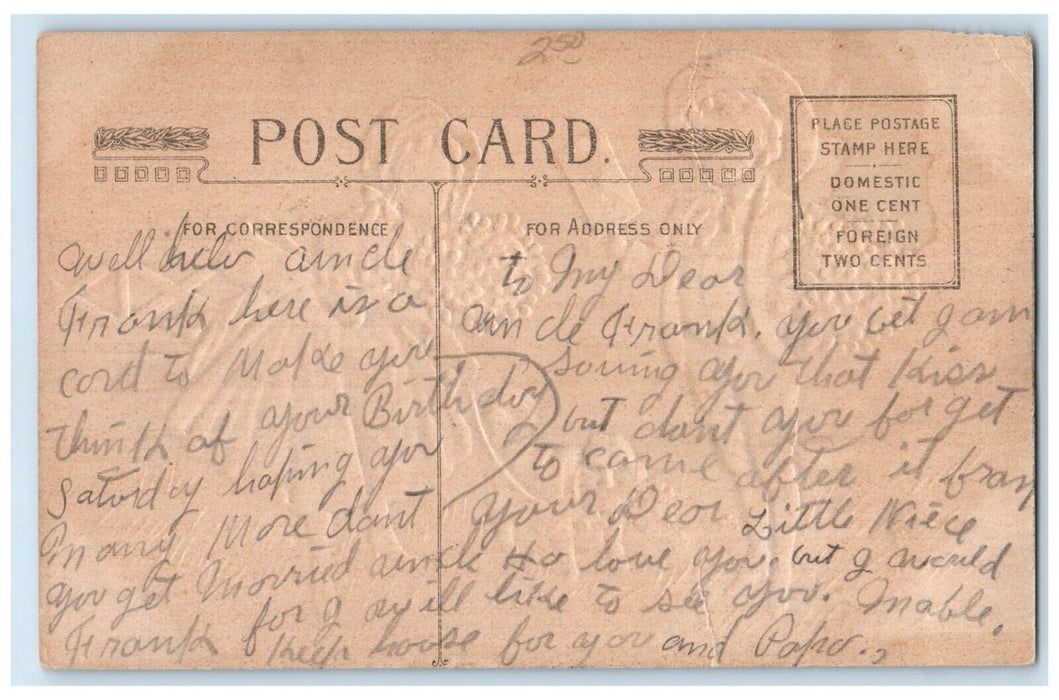 250
POST CARD.
PLACE POSTAGE
STAMP HERE
DOMESTIC
ONE CENT
FOREIGN
TWO CENTS
FOR CORRESPONDENCE
well helo aincle
Frank here is a
cord to Make you
think of your Birth day
Satorday hoping you
Many More dont
you get Morried aincle
Frank for I will
Keep house for you and Papo.
FOR ADDRESS ONLY
to My Dear
aincle Frank. you bet I am
Saving you that Kiss
but dont you for get
to come after it from
your Dear Little Niece
love you. but I would
like to see you. Mable.